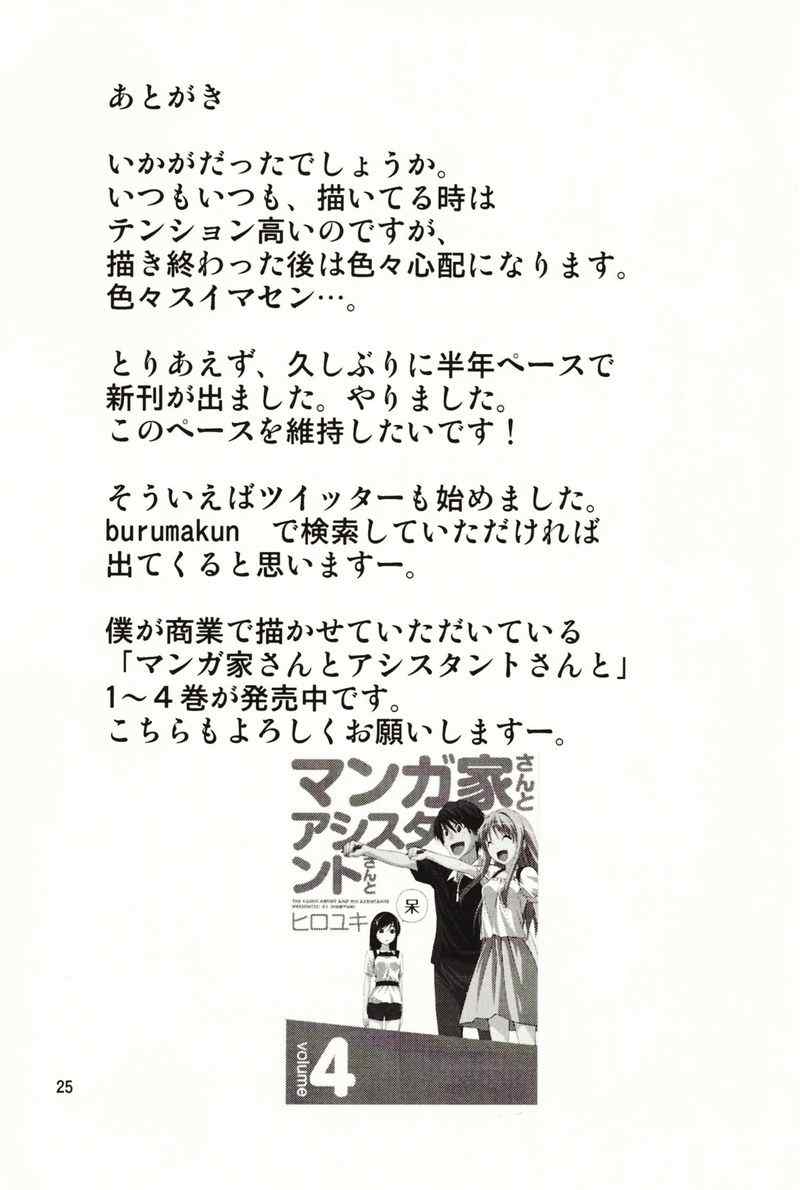 あとがき
いかがだったでしょうか。
いつもいつも、描いてる時は
テンション高いのですが、
描き終わった後は色々心配になります。
色々スイマセン…。
とりあえず、久しぶりに半年ペースで
新刊が出ました。やりました。
このペースを維持したいです！
そういえばツイッターも始めました。
burumakun　で検索していただければ
出てくると思いますー。
僕が商業で描かせていただいている
「マンガ家さんとアシスタントさんと」
1～4巻が発売中です。
こちらもよろしくお願いしますー。
マンガ家さんと
アシスタ
ントさんと
ヒロユキ
呆
volume 4
25